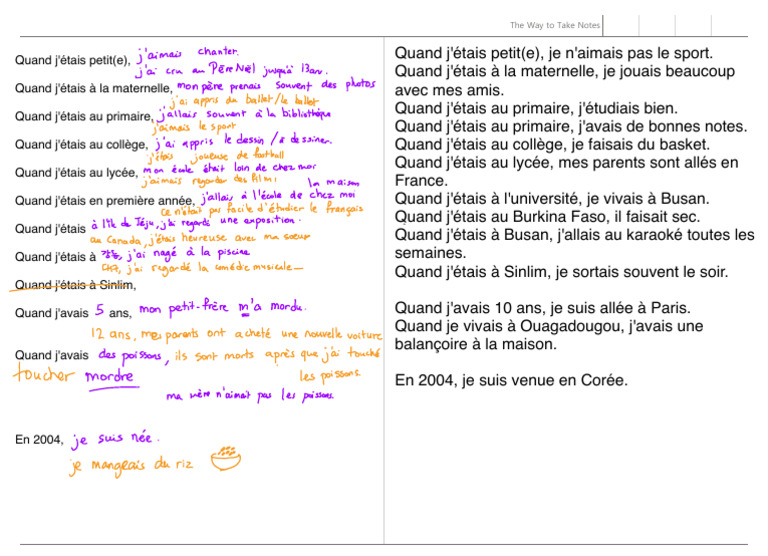 The Way to Take Notes
Quand j'étais petit(e), j'aimais chanter.
j'ai cru au Père Noël jusqu'à 13 ans.
Quand j'étais à la maternelle, mon père prenais souvent des photos
j'ai appris du ballet/le ballet
Quand j'étais au primaire, j'allais souvent à la bibliothèque
j'aimais le sport
Quand j'étais au collège, j'ai appris le dessin / à dessiner.
j'étais joueuse de football
Quand j'étais au lycée, mon école était loin de chez moi
j'aimais regarder des films
la maison
Quand j'étais en première année, j'allais à l'école de chez moi
ce n'était pas facile d'étudier le français
Quand j'étais à l'île de Jéju, j'ai regardé une exposition.
au Canada, j'étais heureuse avec ma sœur
Quand j'étais à 강릉, j'ai nagé à la piscine
j'ai regardé la comédie musicale
Quand j'étais à Sinlim,
Quand j'avais 5 ans, mon petit-frère m'a mordu.
12 ans, mes parents ont acheté une nouvelle voiture
Quand j'avais des poissons, ils sont morts après que j'ai touché
les poissons.
toucher mordre
ma mère n'aimait pas les poissons.
En 2004, je suis née.
je mangeais du riz
Quand j'étais petit(e), je n'aimais pas le sport.
Quand j'étais à la maternelle, je jouais beaucoup
avec mes amis.
Quand j'étais au primaire, j'étudiais bien.
Quand j'étais au primaire, j'avais de bonnes notes.
Quand j'étais au collège, je faisais du basket.
Quand j'étais au lycée, mes parents sont allés en
France.
Quand j'étais à l'université, je vivais à Busan.
Quand j'étais au Burkina Faso, il faisait sec.
Quand j'étais à Busan, j'allais au karaoké toutes les
semaines.
Quand j'étais à Sinlim, je sortais souvent le soir.
Quand j'avais 10 ans, je suis allée à Paris.
Quand je vivais à Ouagadougou, j'avais une
balançoire à la maison.
En 2004, je suis venue en Corée.